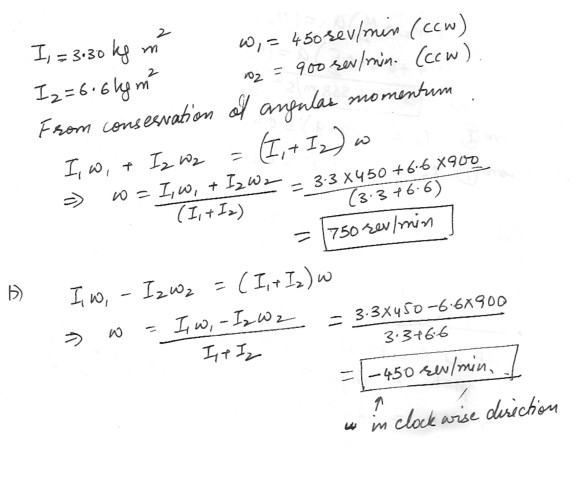 I₁ = 3.30 kg m² ω₁ = 450 rev/min (ccw)
I₂ = 6.6 kg m² ω₂ = 900 rev/min. (ccw).
From conservation of angular momentum.
I₁ω₁ + I₂ω₂ = (I₁+I₂) ω
⇒ ω = I₁ω₁ + I₂ω₂ / (I₁+I₂) = 3.3×450+6.6×900 / (3.3+6.6)
= 750 rev/min
b) I₁ω₁ - I₂ω₂ = (I₁+I₂)ω
⇒ ω = I₁ω₁-I₂ω₂ / I₁+I₂ = 3.3×450-6.6×900 / 3.3+6.6
= -450 rev/min.
↑
in clock wise direction